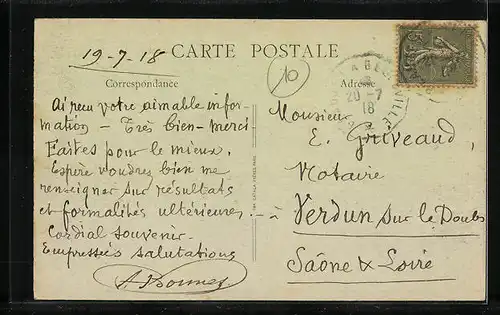 19-7-18
CARTE POSTALE
10
Correspondance
Adresse
Ai reçu votre aimable infor-
mation - Très bien - merci
Faites pour le mieux.
Espère voudrez bien me
renseigner sur résultats
et formalités ultérieures. -
Cordial souvenir
Empressées salutations
Monsieur
E. Griveaud,
Notaire
Verdun sur le Doubs
Saône & Loire
20 -7
18